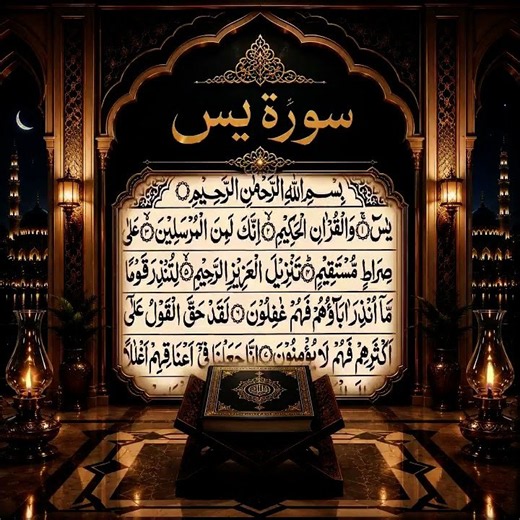 سورة يس
بِسْمِ اللهِ الرَّحْمٰنِ الرَّحِيْمِ
يٰسٓ وَالْقُرْاٰنِ الْحَكِيْمِ اِنَّكَ لَمِنَ الْمُرْسَلِيْنَ عَلٰى
صِرَاطٍ مُّسْتَقِيْمٍ تَنْزِيْلَ الْعَزِيْزِ الرَّحِيْمِ لِتُنْذِرَ قَوْمًا
مَّاۤ اُنْذِرَ اٰبَآؤُهُمْ فَهُمْ غٰفِلُوْنَ لَقَدْ حَقَّ الْقَوْلُ عَلٰۤى
اَكْثَرِهِمْ فَهُمْ لَا يُؤْمِنُوْنَ اِنَّا جَعَلْنَا فِيْۤ اَعْنَاقِهِمْ اَغْلٰلًا